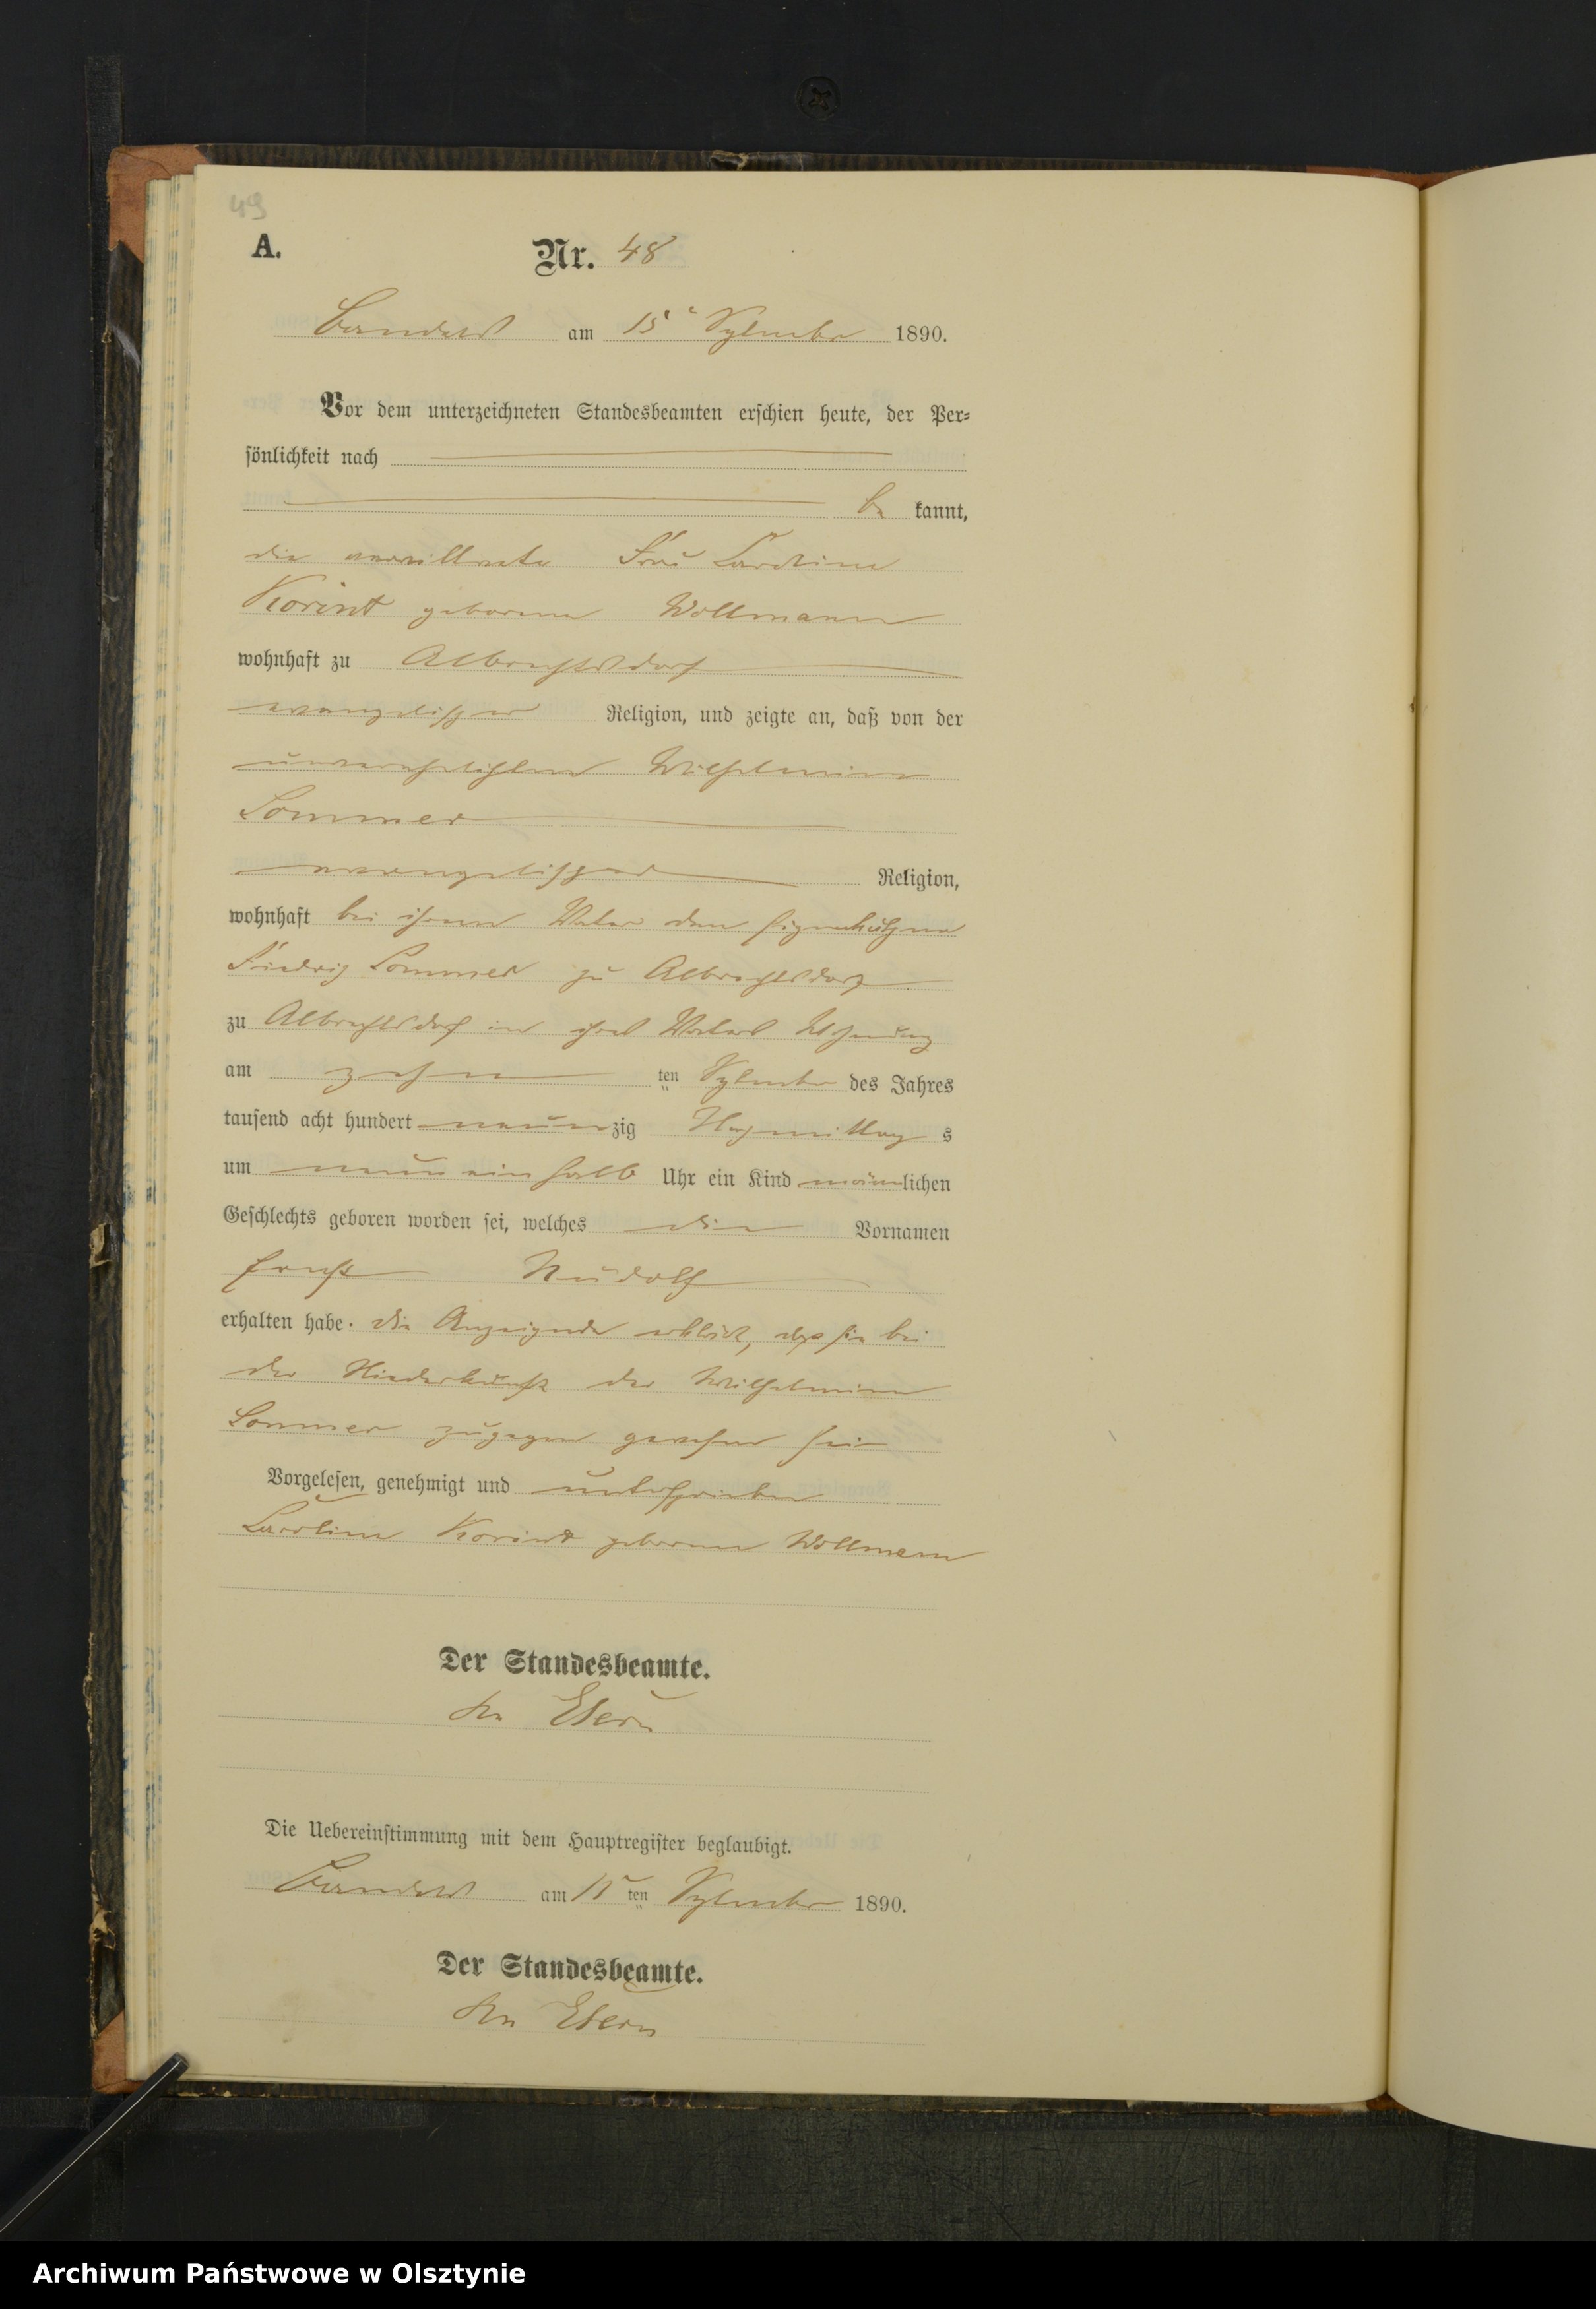 49
A. Nr. 48
am 15 September 1890.
Vor dem unterzeichneten Standesbeamten erschien heute, der Per-
sönlichkeit nach
be kannt,
die verwittwete Frau Caroline
Korint geborene Wollmann
wohnhaft zu Albrechtsdorf
evangelischer Religion, und zeigte an, daß von der
unverehelichten Wilhelmine
Sommer
evangelischer Religion,
wohnhaft bei ihrem Vater dem Eigenkäthner
Friedrich Sommer zu Albrechtsdorf
zu Albrechtsdorf in ihres Vaters Wohnung
am zehn ten September des Jahres
tausend acht hundert neun zig Nachmittag s
um neun ein halb Uhr ein Kind männ lichen
Geschlechts geboren worden sei, welches die Vornamen
Ernst Rudolf
erhalten habe. die Anzeigende erklärt, daß sie bei
der Niederkunft der Wilhelmine
Sommer zugegen gewesen sei
Vorgelesen, genehmigt und unterschrieben
Caroline Korint geborene Wollmann
Der Standesbeamte.
Die Uebereinstimmung mit dem Hauptregister beglaubigt.
am 15 ten September 1890.
Der Standesbeamte.
Archiwum Państwowe w Olsztynie